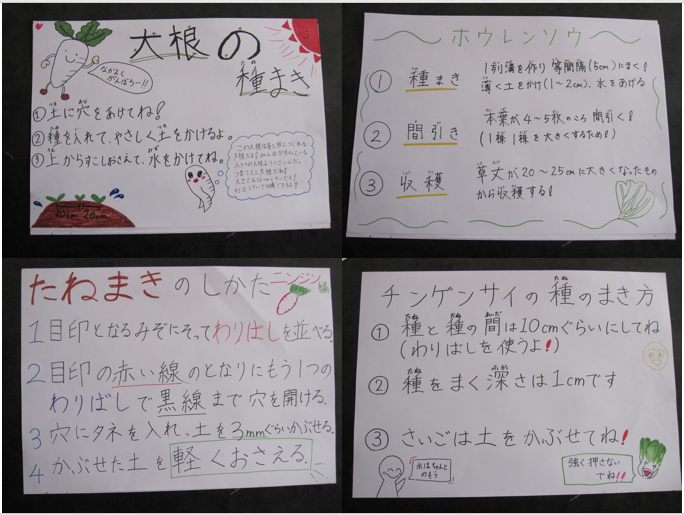 大根の
種まき
たね
なかよく
がんばろー!!
①土に穴をあけてね!
②種を入れて、やさしく土をかけるよ。
③上からすこしおさえて、水をかけてね。
20cm 20cm
ホウレンソウ
① 種まき
1列溝を作り 等間隔(5cm)にまく!
薄く土をかけ(1〜2cm)、水をあげる
② 間引き
本葉が4〜5枚のころ 間引く!
(1株1株を大きくするため!)
③ 収穫
草丈が20〜25cmに大きくなったもの
から収穫する!
たねまきのしかた ニンジン編
1 目印となるみぞにそってわりばしを並べる。
2 目印の赤い線のとなりにもう1つの
わりばしで黒線まで穴を開ける。
3 穴にタネを入れ、土を3mmぐらいかぶせる。
4 かぶせた土を軽くおさえる。
チンゲンサイの種のまき方
① 種と種の間は10cmぐらいにしてね
(わりばしを使うよ!)
② 種をまく深さは1cmです
③ さいごは土をかぶせてね!
水はちゃんと
のもう
強く押さない
でね!!